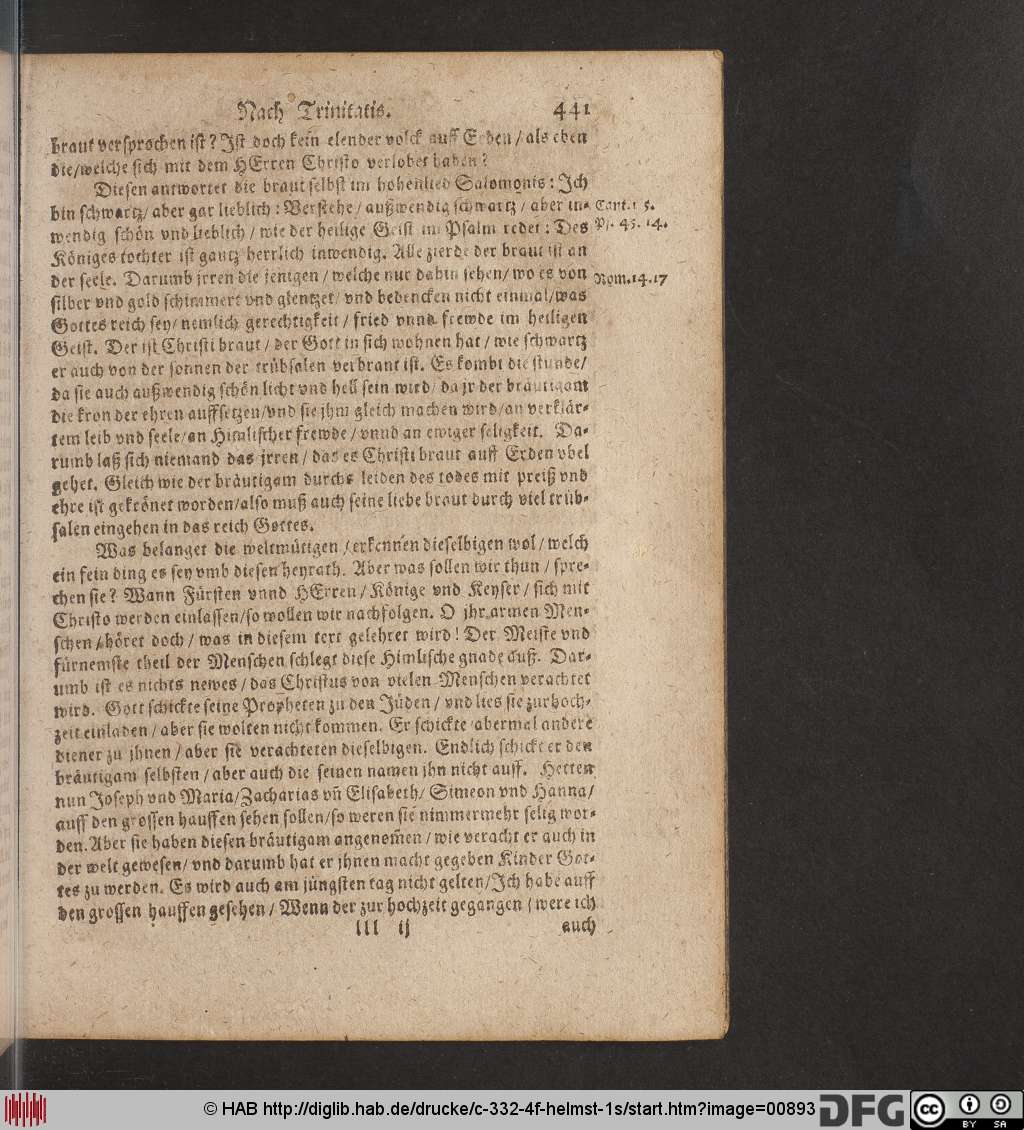 Nach Trinitatis. 441
braut versprochen ist? Ist doch kein elender volck auff Erden / als eben
die/welche sich mit dem HErren Christo verlobet haben?
Diesen antwortet die braut selbst im hohenlied Salomonis: Ich
bin schwartz/ aber gar lieblich: Verstehe / außwendig schwartz / aber in- Cant. 1 5.
wendig schön vnd lieblich / wie der heilige Geist im Psalm redet: Des Ps. 45. 14.
Königes tochter ist gantz herrlich inwendig. Alle zierde der braut ist an
der seele. Darumb jrren die jenigen / welche nur dahin sehen/ wo es von Rom.14.17
silber vnd gold schimmert vnd glentzet/ vnd bedencken nicht einmal/was
Gottes reich sey/ nemlich gerechtigkeit / fried vnnd frewde im heiligen
Geist. Der ist Christi braut / der Gott in sich wohnen hat / wie schwartz
er auch von der sonnen der trübsalen verbrant ist. Es kombt die stunde/
da sie auch außwendig schön licht vnd hell sein wird/ da jr der bräutigam
die kron der ehren auffsetzen/vnd sie jhm gleich machen wird/an verklär-
tem leib vnd seele/an Himlischer frewde / vnnd an ewiger seligkeit. Da-
rumb laß sich niemand das jrren / das es Christi braut auff Erden vbel
gehet. Gleich wie der bräutigam durchs leiden des todes mit preiß vnd
ehre ist gekrönet worden/also muß auch seine liebe braut durch viel trüb-
salen eingehen in das reich Gottes.
Was belanget die weltmütigen / erkennen dieselbigen wol / welch
ein fein ding es sey vmb diesen heyrath. Aber was sollen wir thun / spre-
chen sie? Wann Fürsten vnnd HErren / Könige vnd Keyser / sich mit
Christo werden einlassen/so wollen wir nachfolgen. O jhr armen Men-
schen / höret doch / was in diesem text gelehret wird! Der Meiste vnd
fürnemste theil der Menschen schlegt diese Himlische gnade auß. Dar-
umb ist es nichts newes / das Christus von vielen Menschen verachtet
wird. Gott schickte seine Propheten zu den Jüden / vnd lies sie zur hoch-
zeit einladen / aber sie wolten nicht kommen. Er schickte abermal andere
diener zu jhnen / aber sie verachteten dieselbigen. Endlich schickt er den
bräutigam selbsten / aber auch die seinen namen jhn nicht auff. Hetten
nun Joseph vnd Maria/Zacharias vñ Elisabeth/ Simeon vnd Hanna/
auff den grossen hauffen sehen sollen/so weren sie nimmermehr selig wor-
den. Aber sie haben diesen bräutigam angenom̃en / wie veracht er auch in
der welt gewesen/ vnd darumb hat er jhnen macht gegeben Kinder Got-
tes zu werden. Es wird auch am jüngsten tag nicht gelten/Ich habe auff
den grossen hauffen gesehen / Wenn der zur hochzeit gegangen / were ich
lll ij auch
© HAB http://diglib.hab.de/drucke/c-332-4f-helmst-1s/start.htm?image=00893 DFG cc BY SA